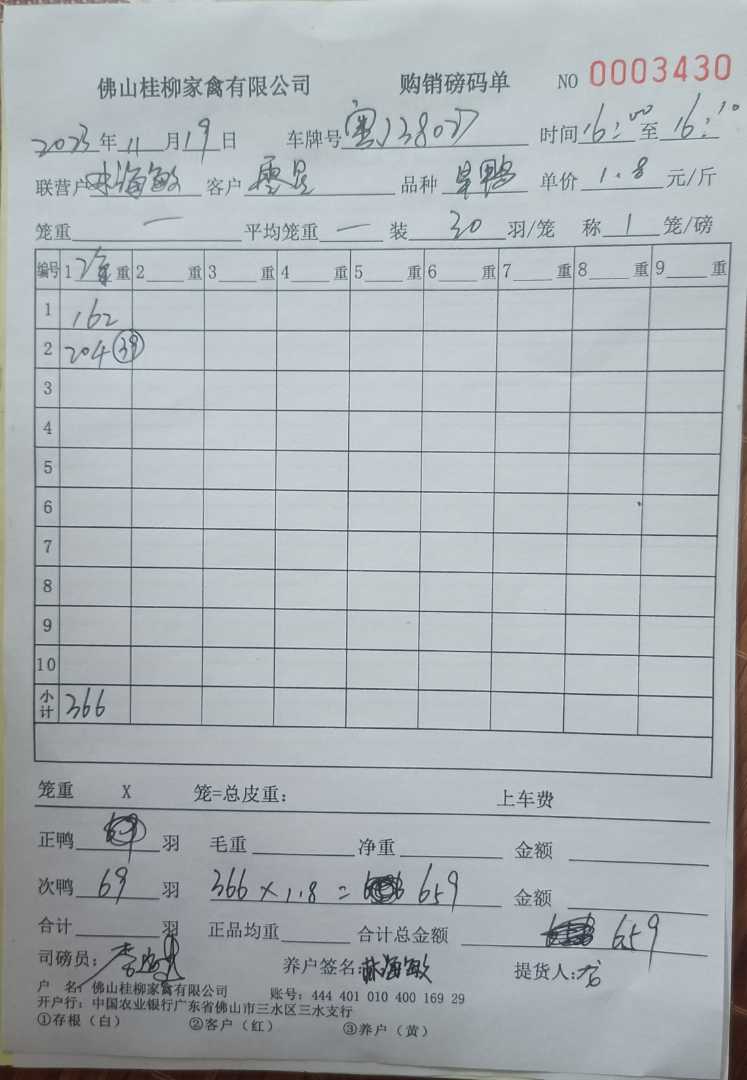 佛山桂柳家禽有限公司 购销磅码单 NO 0003430
2023年11月19日 车牌号粤J38027 时间16:00至16:10
联营户林海敏 客户 品种旱鸭 单价1.8元/斤
笼重一 平均笼重一 装30羽/笼 称1笼/磅
编号 1 净重 2 重 3 重 4 重 5 重 6 重 7 重 8 重 9 重
1 162
2 204 39
3
4
5
6
7
8
9
10
小计 366
笼重 X 笼=总皮重: 上车费
正鸭 羽 毛重 净重 金额
次鸭69羽 366×1.8=659 金额
合计 羽 正品均重 合计总金额 659
司磅员: 养户签名:林海敏 提货人:
户 名:佛山桂柳家禽有限公司 账号: 444 401 010 400 169 29
开户行: 中国农业银行广东省佛山市三水区三水支行
①存根(白) ②客户(红) ③养户(黄)